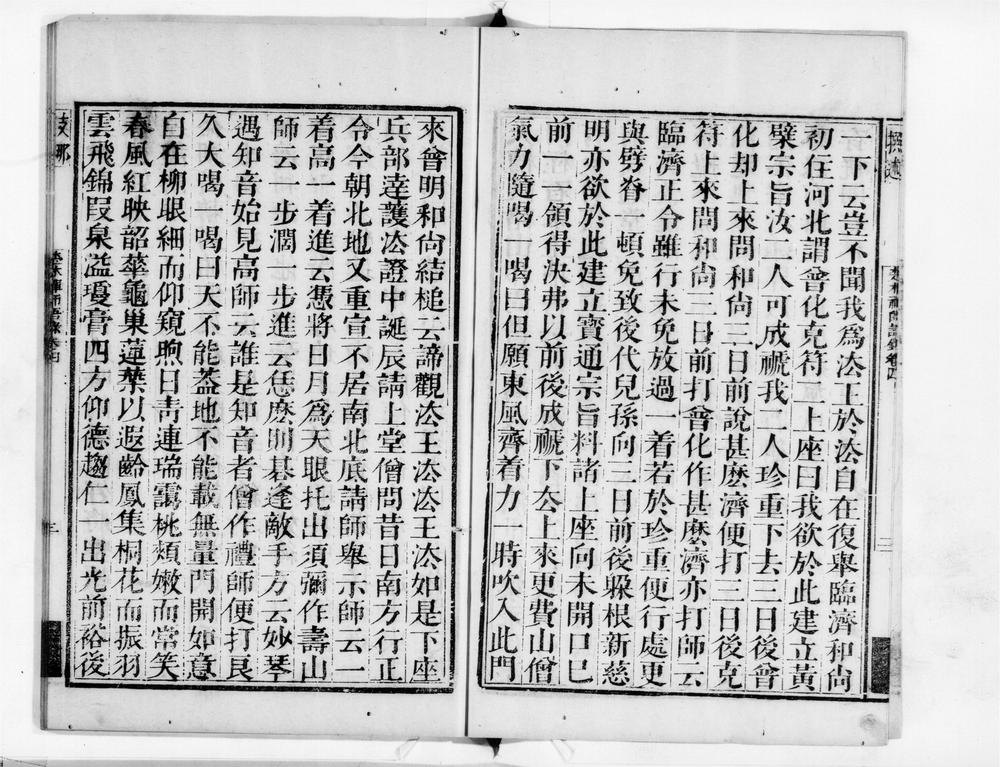 一下云豈不聞我爲㳒王於㳒自在復舉臨濟和尚
初住河北謂曾化克符二上座曰我欲於此建立黃
檗宗旨汝二人可成禠我二人珍重下去三日後曾
化却上來問和尚三日前說甚麽濟便打三日後克
符上來問和尚三日前打曾化作甚麽濟亦打師云
臨濟正令雖行未免放過一着若於珍重便行處更
與劈脊一頓免致後代兒孫向三日前後躲根新慈
明亦欲於此建立寶通宗旨料諸上座向未開口已
前一一領得決弗以前後成禠下厺上來更費山僧
氣力隨喝一喝曰但願東風齊着力一時吹入此門
來曾明和尚結槌云諦觀㳒王㳒㳒王㳒如是下座
兵部達護㳒證中誕辰請上堂僧問昔日南方行正
令今朝北地又重宣不居南北底請師舉示師云一
着高一着進云憑將日月爲天眼托出須彌作壽山
師云一步濶一步進云恁麽則棊逢敵手方云妙琴
遇知音始見高師云誰是知音者僧作禮師便打良
久大喝一喝曰天不能葢地不能載無量門開如意
自在柳眼細而仰窺煦日靑連瑞靄桃頰嫩而常笑
春風紅映韶華龜巢蓮葉以遐齡鳳集桐花而振羽
雲飛錦叚泉溢瓊膏四方仰德趨仁一出光前裕後
撰述
支那